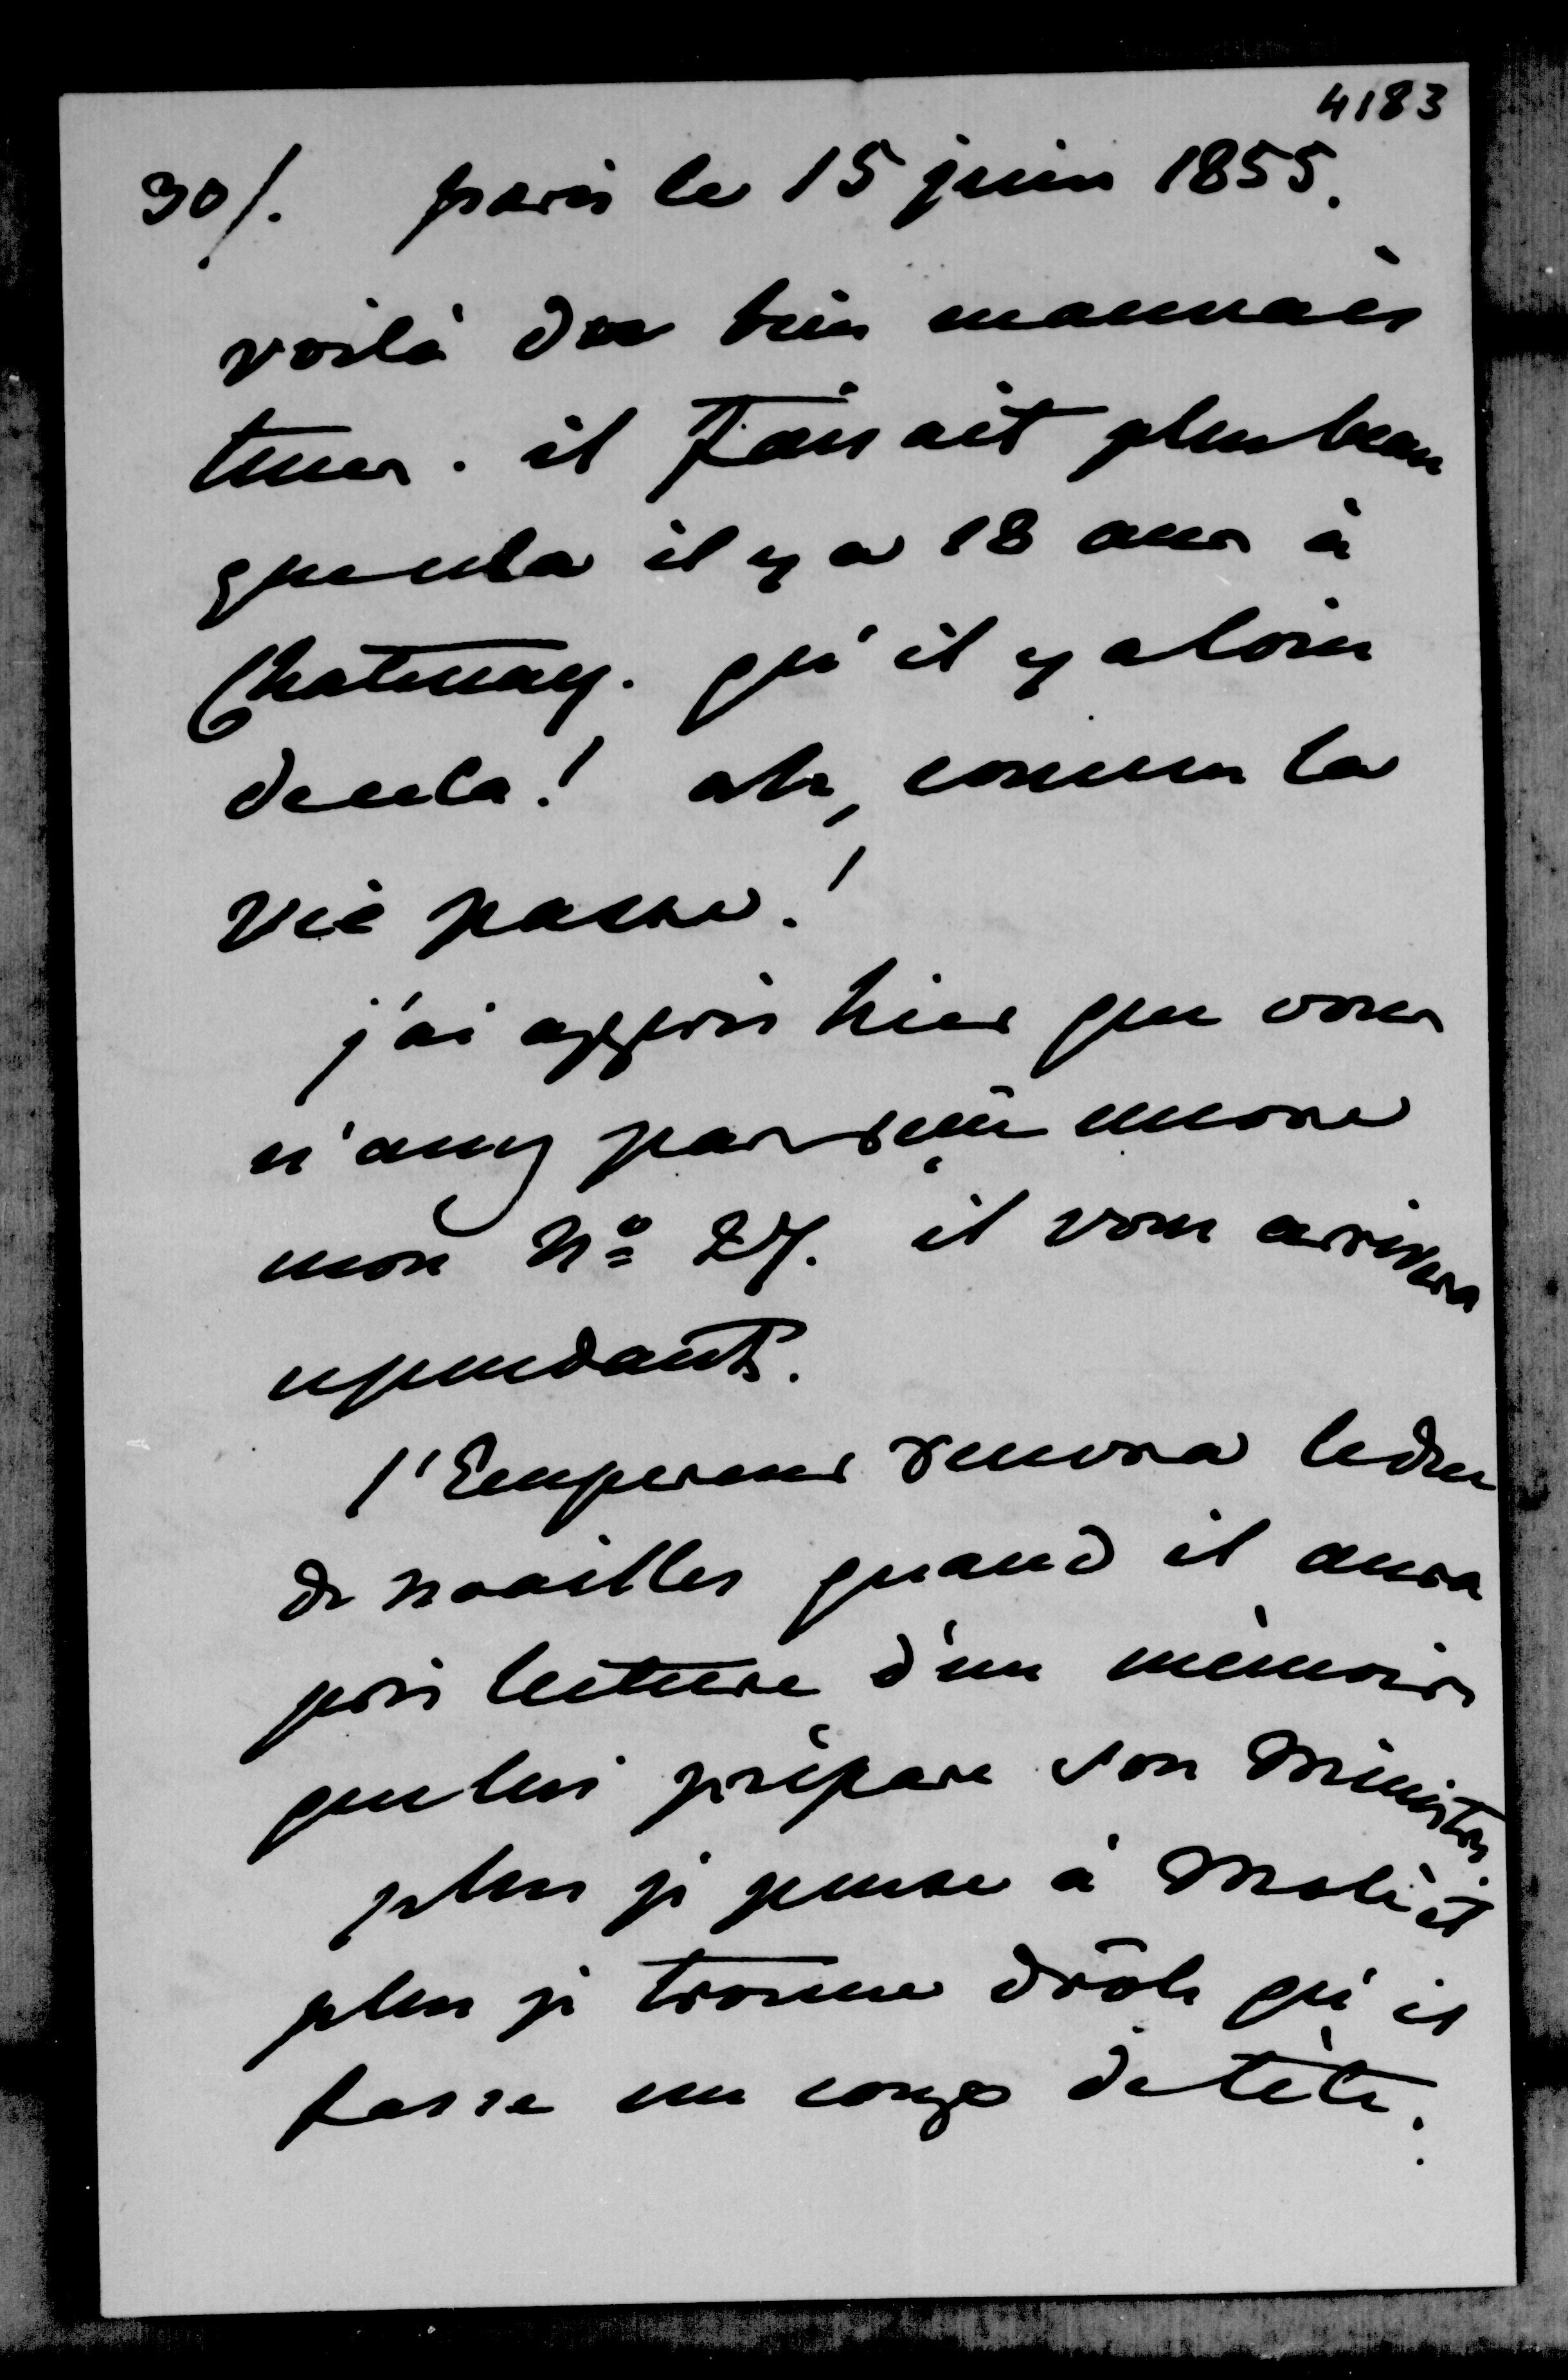 4183
30/. paris le 15 juin 1855.
voilà du bien mauvais
tems. il faisait plus beau
que cela il y a 18 ans à
Chatenay. qu'il y a loin
de cela! ah, comme la
vie passe!
j'ai appris hier que vous
n'avez pas reçu encore
mon No 27. il vous arrivera
cependant.
l'Empereur recevra le duc
de Noailles quand il aura
pris lecture d'un mémoire
que lui prépare son Ministre.
plus je pense à Molé et
plus je trouve drôle qu'il
fasse un coup de tête.